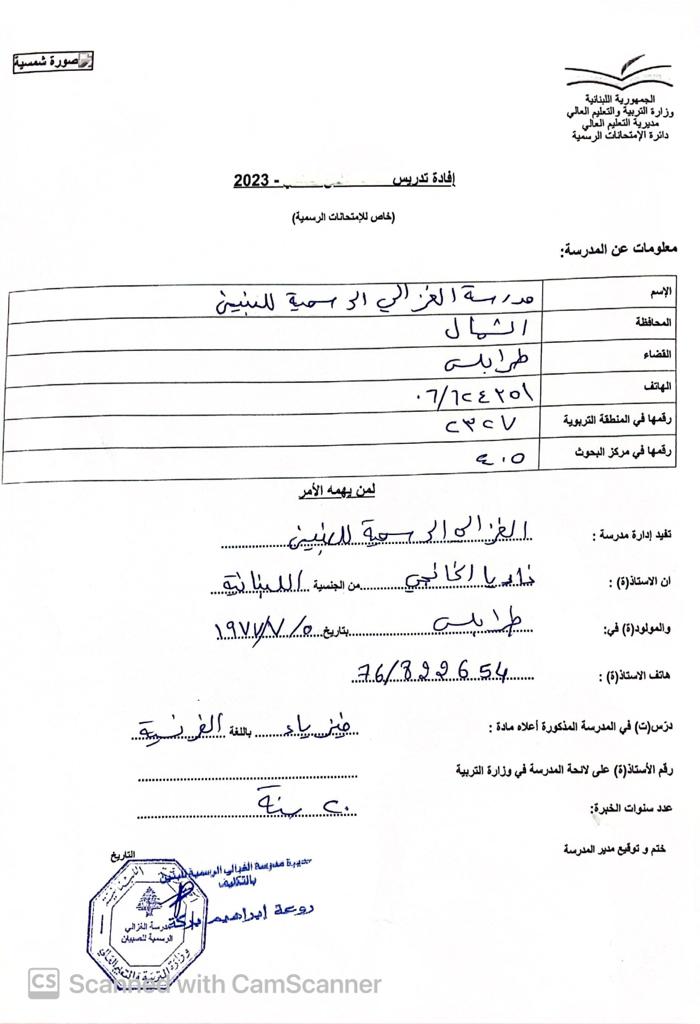 صورة شمسية
الجمهورية اللبنانية
وزارة التربية والتعليم العالي
مديرية التعليم العالي
دائرة الإمتحانات الرسمية
إفادة تدريس - 2023
(خاص للإمتحانات الرسمية)
معلومات عن المدرسة:
الإسم مدرسة الغزالي الرسمية للبنين
المحافظة الشمال
القضاء طرابلس
الهاتف ٠٦/٦٢٤٢٥١
رقمها في المنطقة التربوية ٢٣٢٧
رقمها في مركز البحوث ٤٠٥
لمن يهمه الأمر
تفيد إدارة مدرسة : الغزالي الرسمية للبنين
ان الاستاذ(ة) : ناديا الخانجي من الجنسية اللبنانية
والمولود(ة) في: طرابلس بتاريخ ١٩٧٧/٧/٥
هاتف الاستاذ(ة) : 76/822654
درّس(ت) في المدرسة المذكورة أعلاه مادة : فيزياء باللغة الفرنسية
رقم الأستاذ(ة) على لائحة المدرسة في وزارة التربية
عدد سنوات الخبرة: ٢٠ سنة
ختم و توقيع مدير المدرسة
التاريخ
مديرة مدرسة الغزالي الرسمية للبنين
بالتكليف
روعة إبراهيم بركة
مدرسة الغزالي
الرسمية للصبيان
وزارة التربية والتعليم العالي
CS Scanned with CamScanner